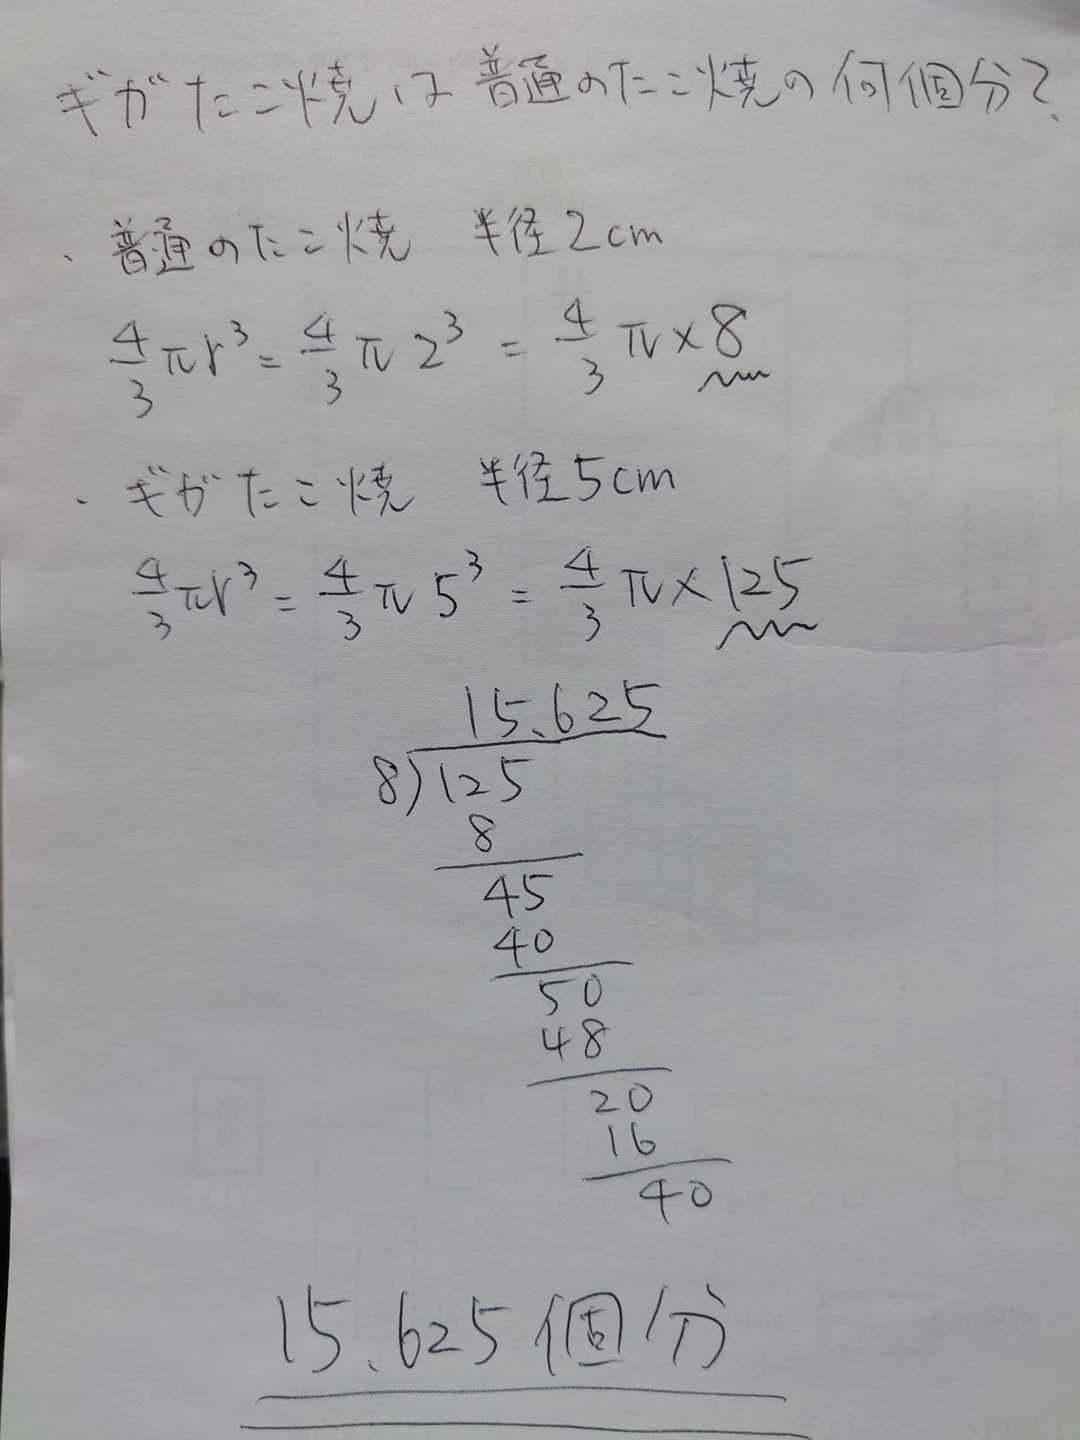 ギガたこ焼は普通のたこ焼の何個分?
・普通のたこ焼 半径2cm
4/3 πr³ = 4/3 π 2³ = 4/3 π × 8
・ギガたこ焼 半径5cm
4/3 πr³ = 4/3 π 5³ = 4/3 π × 125
15.625
8)125
8
45
40
50
48
20
16
40
15.625個分